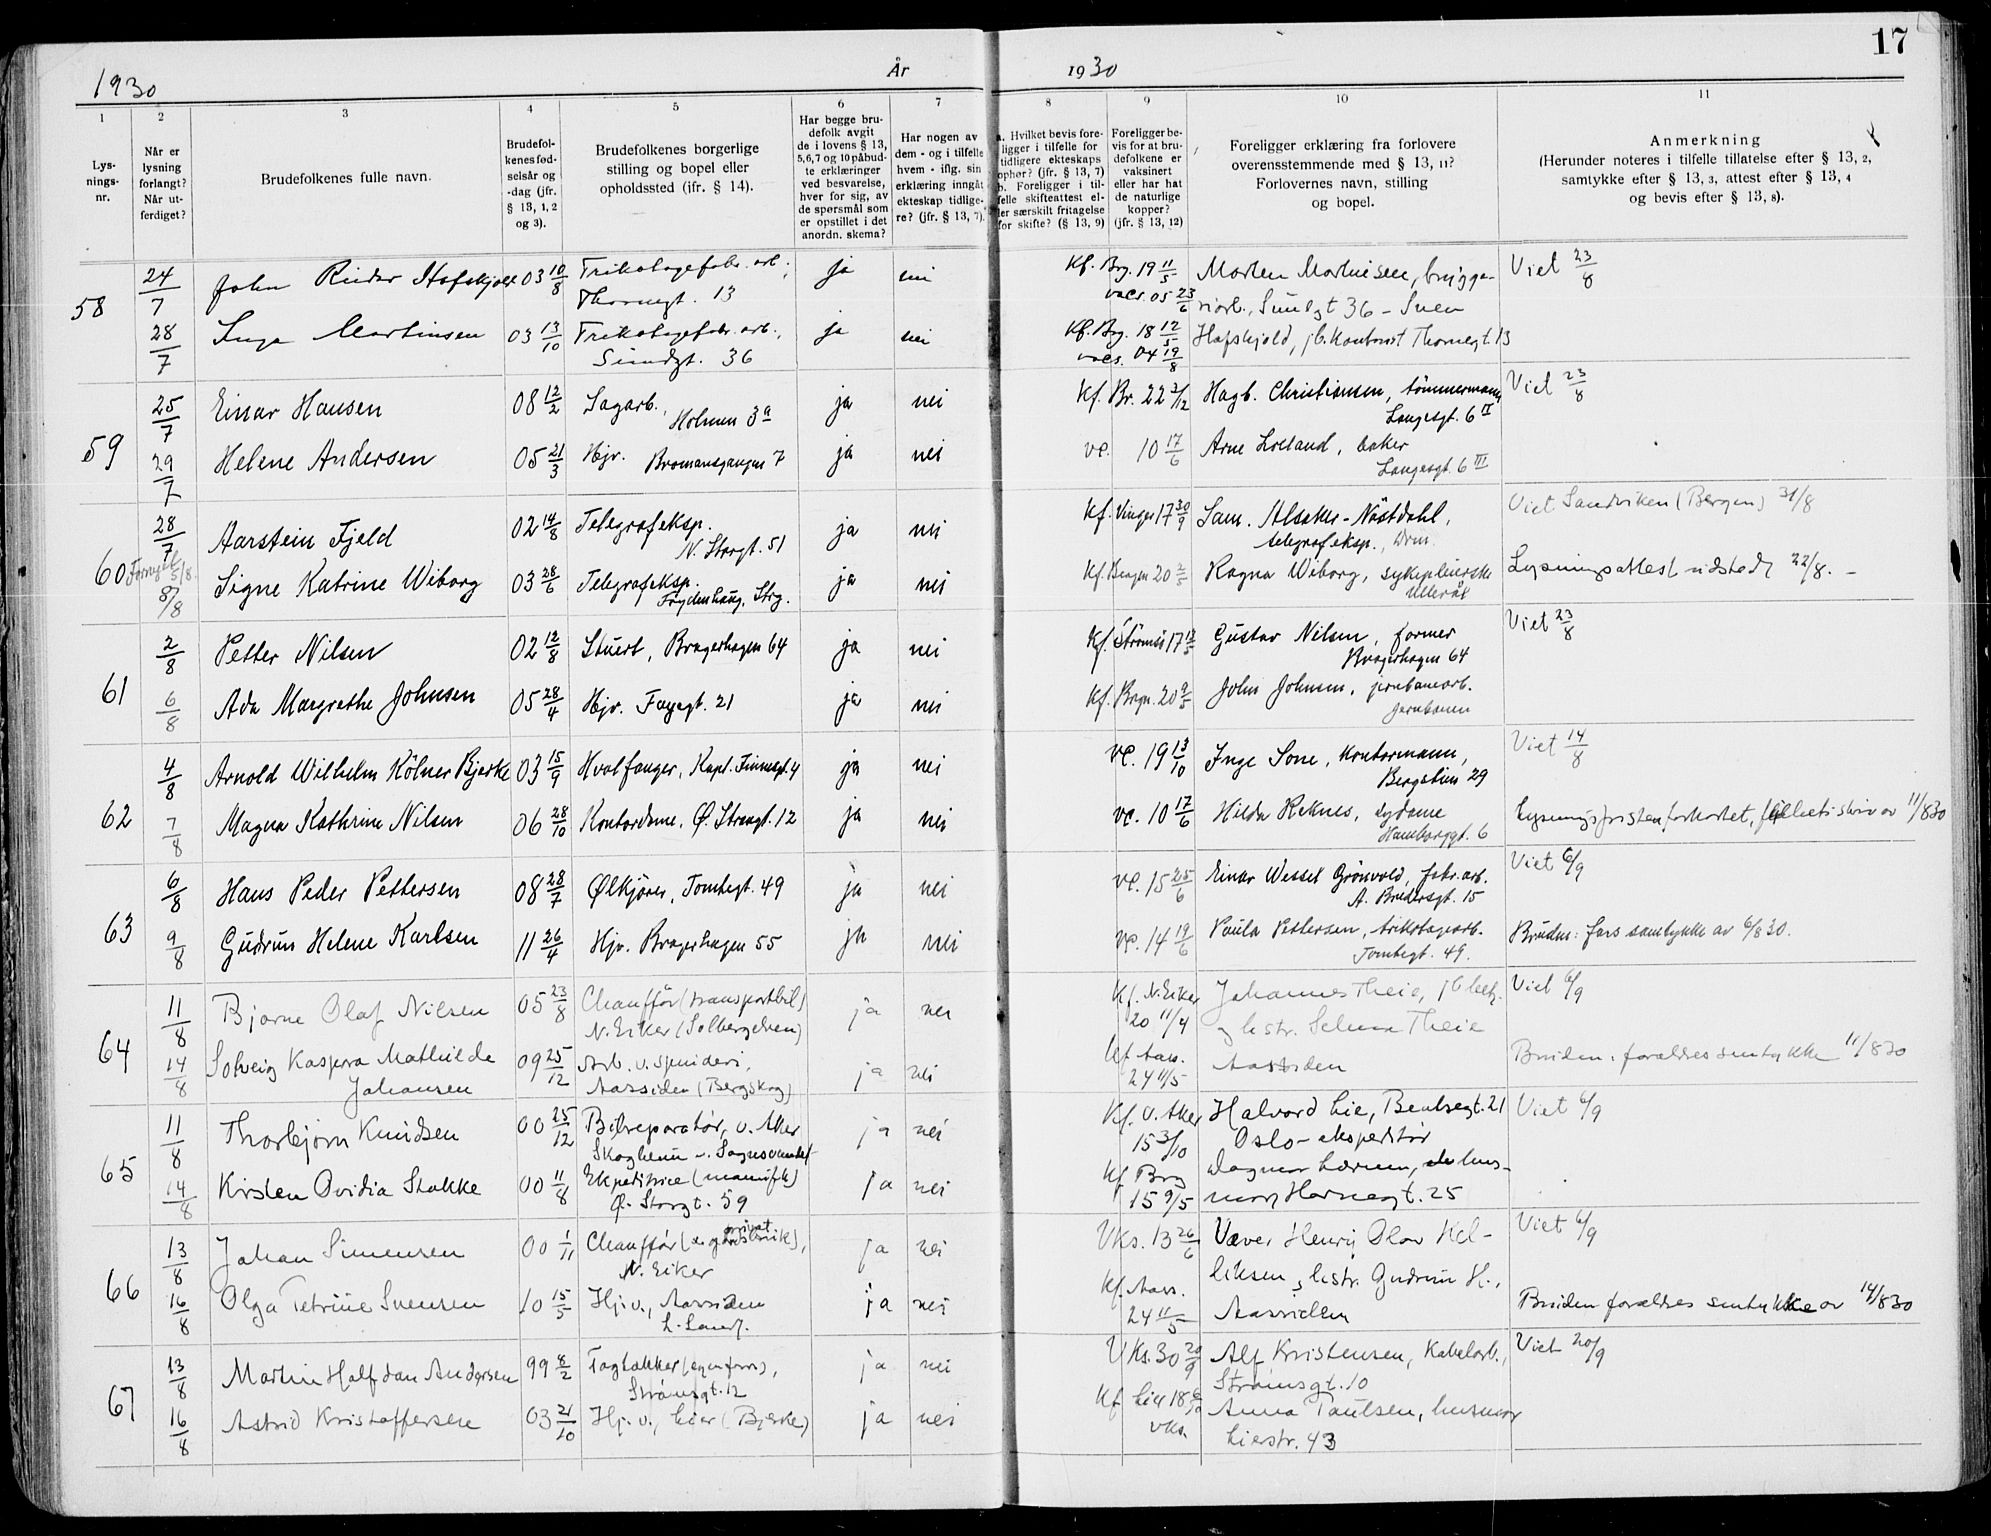 17
1930
År
1930
1 2 3 4 5 6 7 8 9 10 11
Lys-
nings-
nr.
Når er
lysning
forlangt?
Når ut-
ferdiget?
Brudefolkenes fulle navn.
Brudefol-
kenes fød-
selsår og
-dag (jfr.
§ 13, 1, 2
og 3).
Brudefolkenes borgerlige
stilling og bopel eller
opholdssted (ifr. § 14).
Har begge bru-
defolk avgit
de i lovens § 13,
5,6,7 og 10 påbud-
te erklæringer
ved besvarelse,
hver for sig, av
de spørsmål som
er opstillet i det
anordn. skema?
Har nogen av
dem - og i tilfelle
hvem - iflg. sin
erklæring inngåt
ekteskap tidlige-
re? (jfr. § 13, 7).
a. Hvilket bevis fore-
ligger i tilfelle for
tidligere ekteskaps
ophør? (jfr. § 13, 7)
b. Foreligger i til-
felle skifteattest el-
ler særskilt fritagelse
for skifte? (§ 13, 9)
Foreligger be-
vis for at bru-
defolkene er
vaksinert
eller har hat
de naturlige
kopper?
(jfr. § 13, 12)
Foreligger erklæring fra forlovere
overensstemmende med § 13, 11?
Forlovernes navn, stilling
og bopel.
Anmerkning
(Herunder noteres i tilfelle tillatelse efter § 13, 2,
samtykke efter § 13, 3, attest efter § 13, 4
og bevis efter § 13, 8).
58 24/7 John Reidar Hafskjold 03 10/8 Trikotagefabr. arb., ja nei Kf. Brg. 19 11/5 Morten Martinsen, brygge- Viet 23/8
Thornegt. 13 vacs. 05 23/6 riarb., Sundgt 36 – Sven
28/7 Inga Martinsen 03 13/10 Trikotagefabr. arb., ja nei Kf. Brg. 18 12/5 Hafskjold, jb. kontorist Thornegt. 13
Sundgt. 36 vacs. 04 19/8
59 25/7 Einar Hansen 08 12/2 Sagarb., ja nei Kf. Br. 22 3/12 Hagb. Christiansen, tømmermann, Viet 23/8
Holmen 3a Langesgt. 6 II
29/7 Helene Andersen 05 21/3 Hjv. Bromansgangen 7 ja nei vc. 10 17/6 Arne Loeland, baker
Langesgt. 6 III
60 28/7 Aarstein Fjeld 02 14/8 Telegrafeksp. ja nei Kf. Vinger 17 30/9 Sam. Alsaker-Nøstdahl, Viet Sandviken (Bergen) 31/8
N. Storgt. 51 telegrafeksp., Drm.
Fornyet 5/8. 8/8 Signe Katrine Wiborg 03 28/6 Telegrafeksp. ja nei Kf. Bergen 20 2/5 Ragna Wiborg, sykepleierske Lysningsattest utstedt 22/8. –
Frydenhaug, Strg. Ullerål
61 2/8 Petter Nilsen 02 12/8 Stuert, Bragerhagen 64 ja nei Kf. Strømsø 17 13/5 Gustav Nilsen, former Viet 23/8
Bragerhagen 64
6/8 Ada Margrethe Johnsen 05 28/4 Hjv. Fayegt. 21 ja nei Kf. Bragn. 20 9/5 John Johnsen, jernbanearb.
Jernbanen
62 4/8 Arnold Wilhelm Kölner Bjerke 03 15/9 Hvalfanger, Kapt. Finnesgt. 4 ja nei vc. 19 13/10 Inge Sone, kontormann, Viet 14/8
Bergstien 29
7/8 Magna Kathrine Nilsen 06 28/10 Kontordame. Ø. Storegt. 12 ja nei vc. 10 17/6 Hilda Reknes, sydame Lysningsfristen forkortet, skriv av 11/8 30
Hamborggt. 6
63 6/8 Hans Peder Pettersen 08 28/7 Ølkjører, Tomtegt. 49 ja nei vc. 15 25/6 Einar Wessel Grönvold, fabr. arb. Viet 6/9
A. Bredersgt. 15
9/8 Gudrun Helene Karlsen 11 26/4 Hjv. Bragerhagen 55 ja nei vc. 14 19/6 Paula Pettersen, trikotagearb. Bruden: fars samtykke av 6/8 30.
Tomtegt. 49.
64 11/8 Bjarne Olaf Nilsen 05 23/8 Chauffør (transportbil) ja nei Kf. N. Eiker Johannes Theie, jb betj. Viet 6/9
N. Eiker (Solbergelven) 20 11/4 og hstr. Selma Theie
14/8 Solveig Kaspara Mathilde 09 25/12 Arb. v. spinderi, ja nei Kf. Aass. Aassiden Bruden: forældres samtykke 11/8 30
Johansen Aassiden (Bergskog) 24 11/5
65 11/8 Thorbjørn Knudsen 00 25/12 Bilreparatør, v. Aker ja nei Kf. V. Aker Halvard Lie, Bentsegt. 21 Viet 6/9
Skogheim v. Sognsvandet 15 3/10 Oslo – ekspeditør
14/8 Kirsten Ovidia Stokke 00 11/8 Ekspeditrice (manufk) ja nei Kf Brg Dagmar Lærum, hus-
Ø. Storgt. 59 15 9/5 mor, Havnegt. 25
66 13/8 Johan Simensen 00 1/11 Chauffør (privat gårdsbruk), ja nei Vks. 13 26/6 Væver Henry Olav Hel- Viet 6/9
N. Eiker leksen, hstr. Gudrun H.,
16/8 Olga Petrine Svensen 10 15/5 Hj. v., Aassiden ja nei Kf. Aass. 24 11/5 Aassiden Bruden forældres samtykke av 14/8 30
67 13/8 Martin Halfdan Andersen 99 8/2 Tagtækker (egen forr), ja nei Vks. 30 20/9 Alf Kristensen, Kabelarb., Viet 20/9
Strømsgt. 12 Strømsgt. 10
16/8 Astrid Kristoffersen 03 21/10 Hj. v., Lier (Bjerke) ja nei Kf Lier 18 6/10 Anna Paulsen, husmor
vks. Lierstr. 43